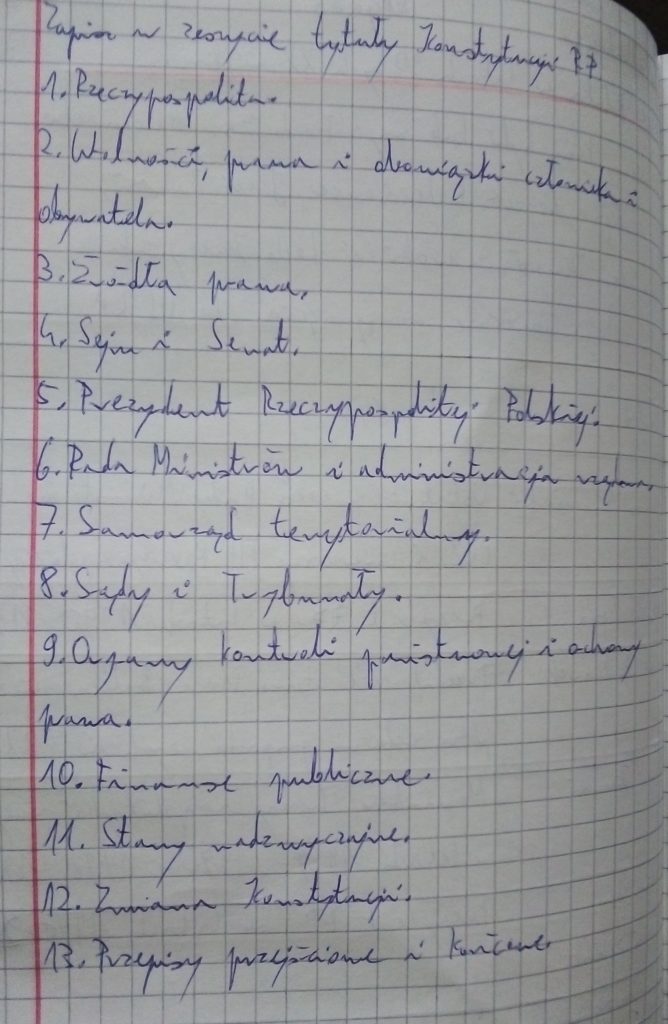 Zapisz w zeszycie tytuły Konstytucji RP
1. Rzeczypospolita.
2. Wolności, prawa i obowiązki człowieka i
obywatela.
3. Źródła prawa.
4. Sejm i Senat.
5. Prezydent Rzeczypospolitej Polskiej.
6. Rada Ministrów i administracja rządowa.
7. Samorząd terytorialny.
8. Sądy i Trybunały.
9. Organy kontroli państwowej i ochrony
prawa.
10. Finanse publiczne.
11. Stany nadzwyczajne.
12. Zmiana Konstytucji.
13. Przepisy przejściowe i końcowe.